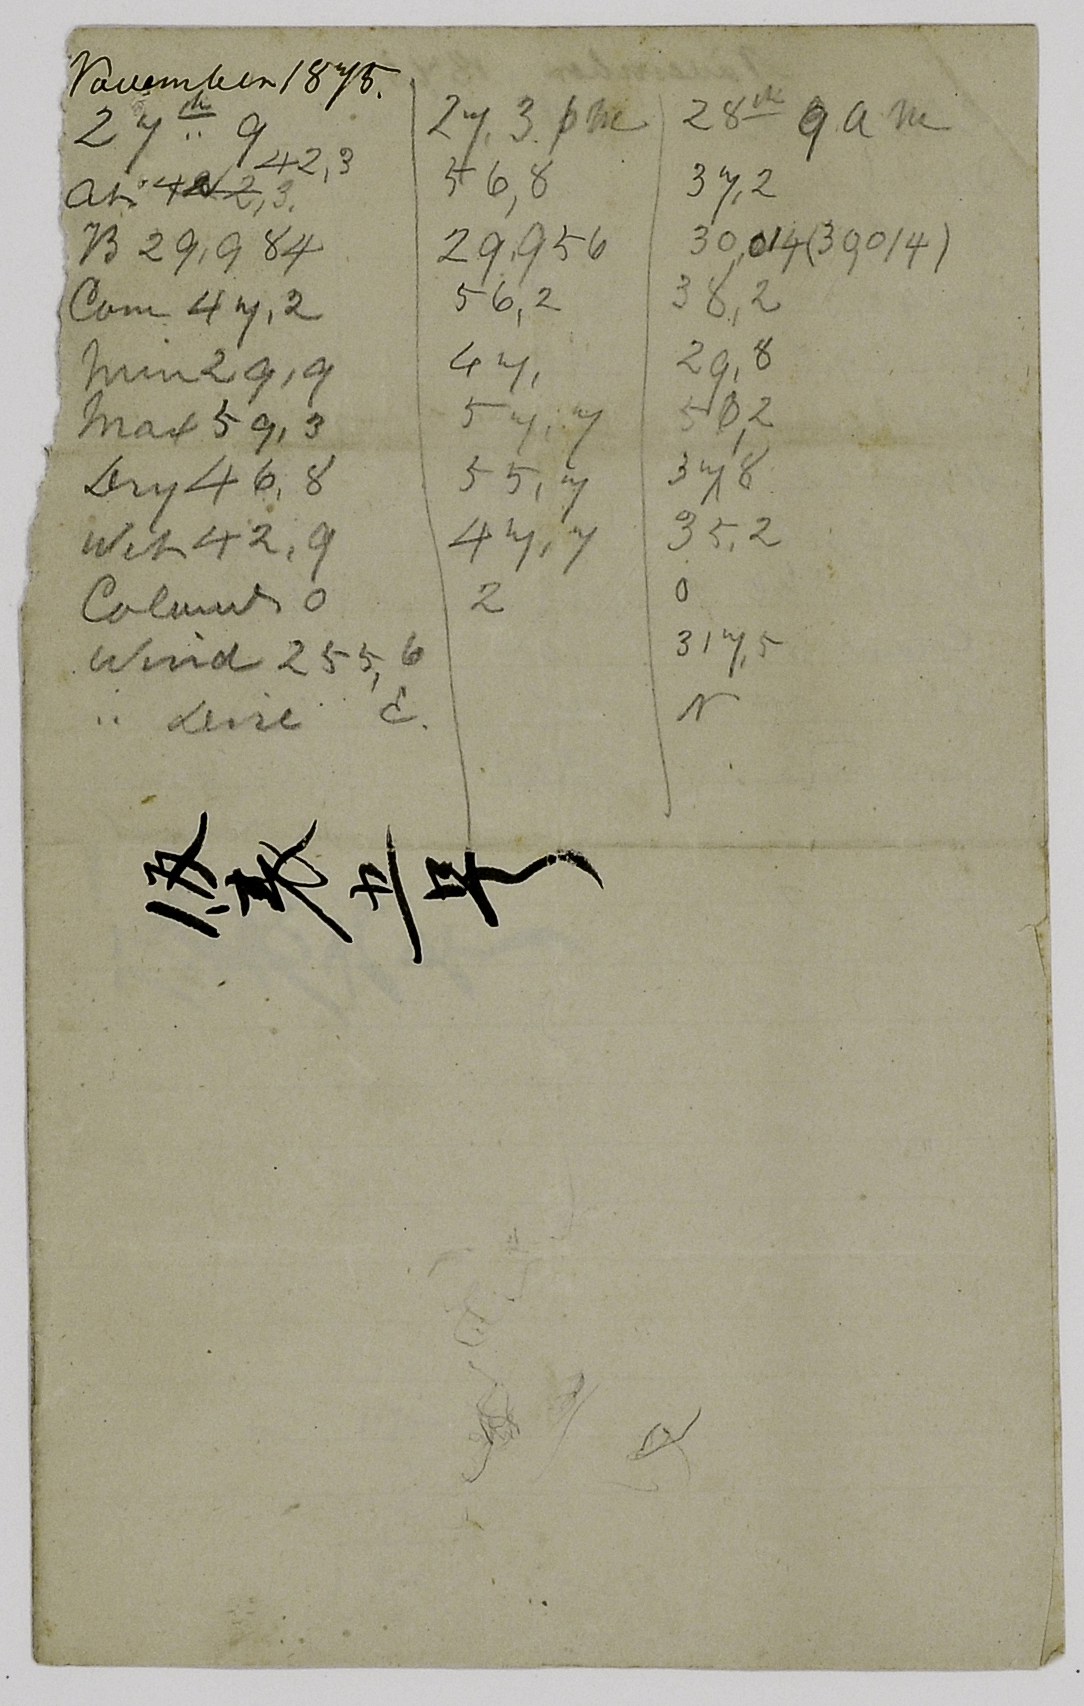 November 1875.
27th 9 27, 3 pm 28th 9 a m
42,3
At. 42,3. 56,8 37,2
B 29,984 29,956 30,014 (30014)
Com 47,2 56,2 38,2
Min 29,9 47, 29,8
Max 59,3 57,7 56,2
Dry 46,8 55,7 37,8
Wet 42,9 47,7 35,2
0 2 0
Wind 255,6 317,5
" Dire E. N